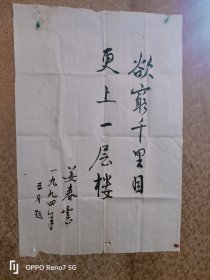 欲窮千里目
更上一层楼
姜春雲
一九九四年
五月题
OPPO Reno7 5G